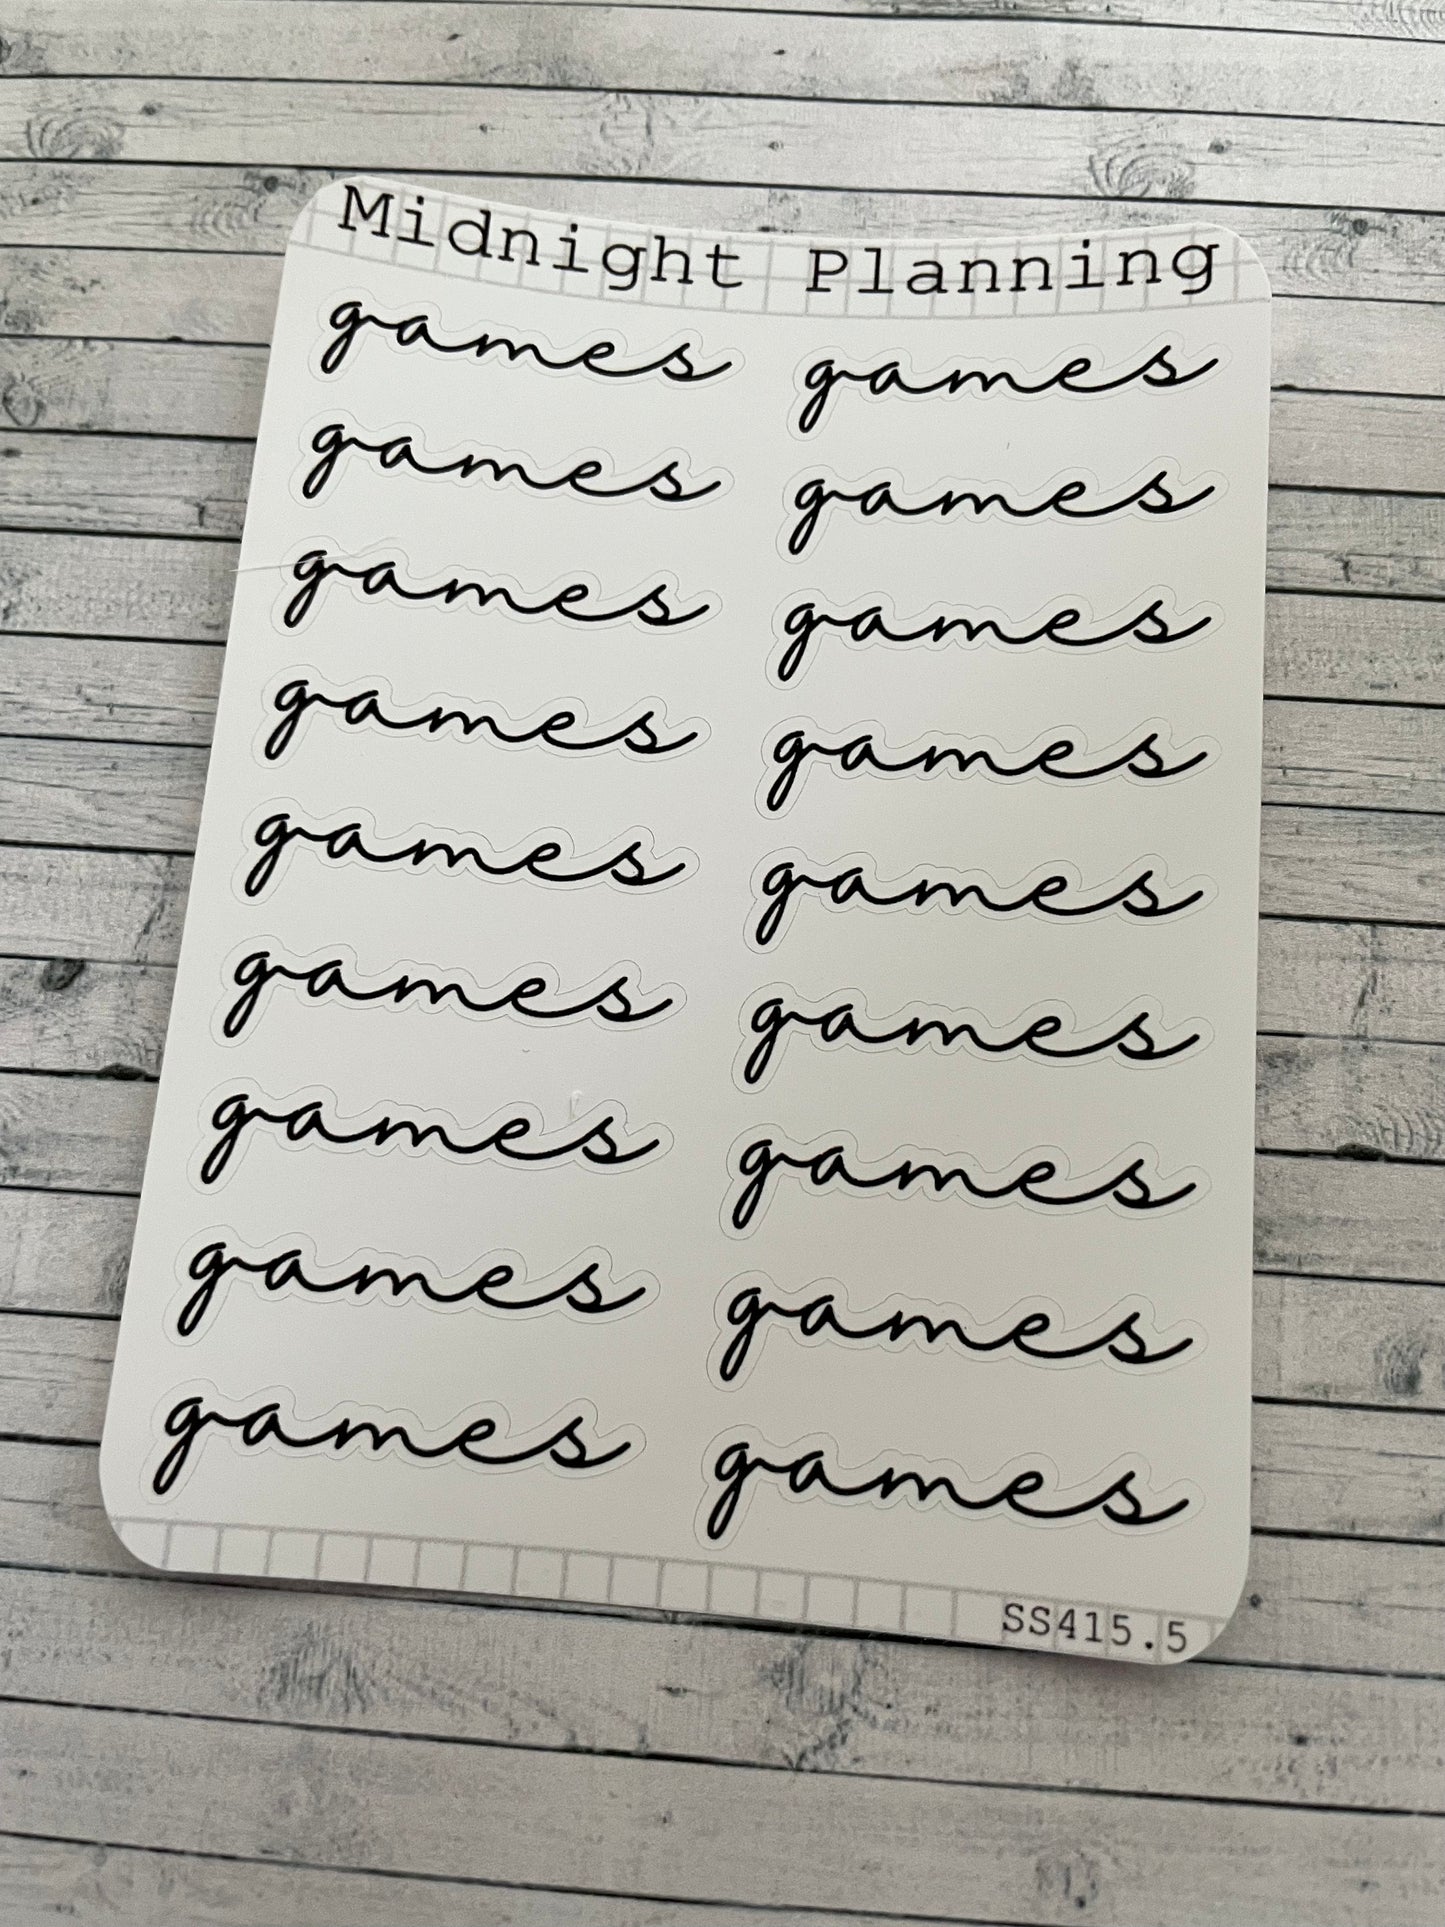 Midnight Planning
games games
games games
games games
games games
games games
games games
games games
games games
games games
SS415.5